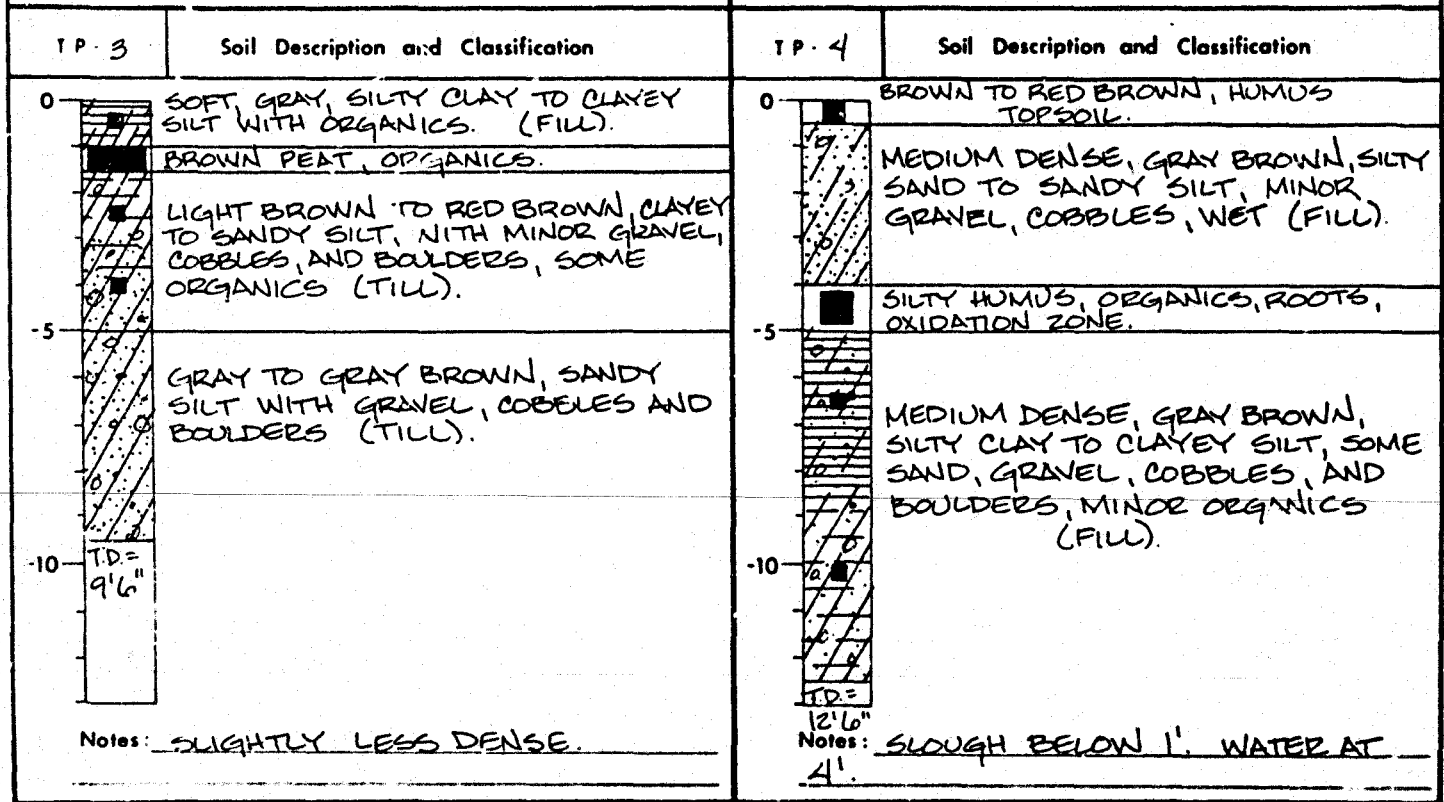 TP-3 Soil Description and Classification
0
SOFT, GRAY, SILTY CLAY TO CLAYEY
SILT WITH ORGANICS. (FILL).
BROWN PEAT, ORGANICS.
LIGHT BROWN TO RED BROWN, CLAYEY
TO SANDY SILT, WITH MINOR GRAVEL,
COBBLES, AND BOULDERS, SOME
ORGANICS (TILL).
-5
GRAY TO GRAY BROWN, SANDY
SILT WITH GRAVEL, COBBLES AND
BOULDERS (TILL).
-10
T.D.=
9'6"
Notes: SLIGHTLY LESS DENSE.
TP-4 Soil Description and Classification
0
BROWN TO RED BROWN, HUMUS
TOPSOIL.
MEDIUM DENSE, GRAY BROWN, SILTY
SAND TO SANDY SILT, MINOR
GRAVEL, COBBLES, WET (FILL).
SILTY HUMUS, ORGANICS, ROOTS,
OXIDATION ZONE.
-5
MEDIUM DENSE, GRAY BROWN,
SILTY CLAY TO CLAYEY SILT, SOME
SAND, GRAVEL, COBBLES, AND
BOULDERS, MINOR ORGANICS
(FILL).
-10
T.D.=
12'6"
Notes: SLOUGH BELOW 1'. WATER AT
4'.